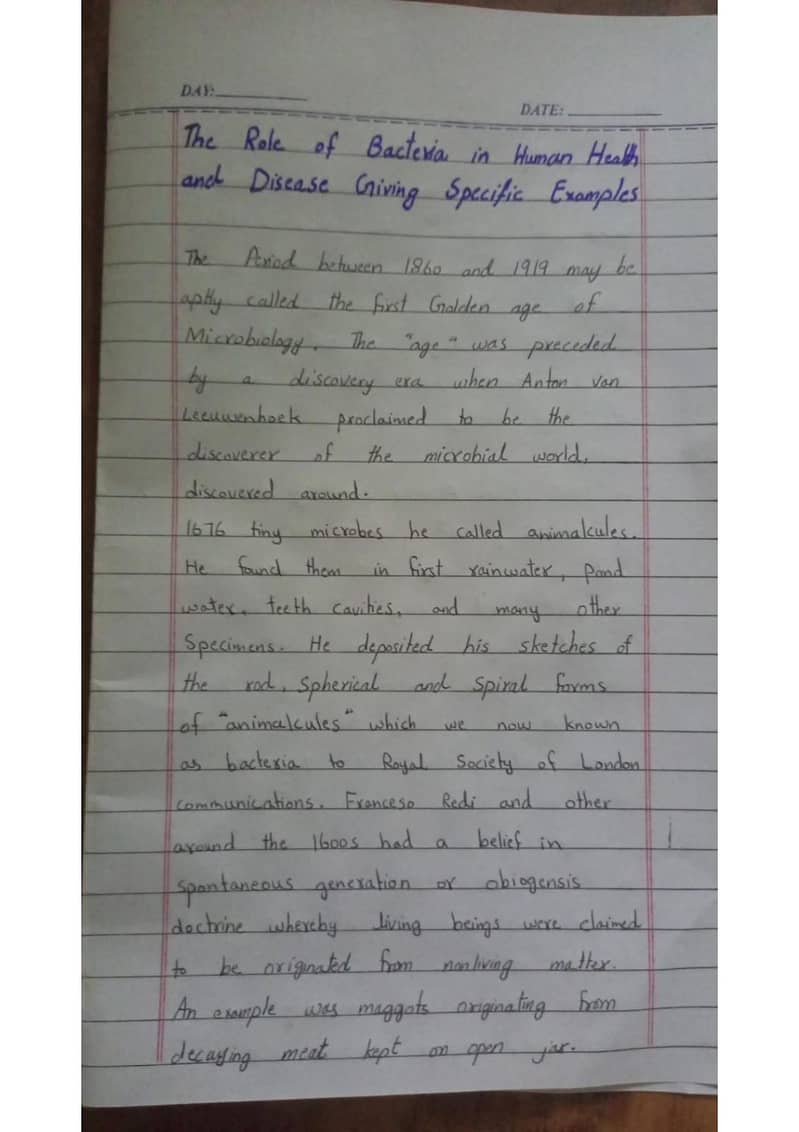 DAY:
DATE:
The Role of Bacteria in Human Health
and Disease Giving Specific Examples
The Period between 1860 and 1919 may be
aptly called the first Golden age of
Microbiology. The "age" was preceded
by a discovery era when Anton van
Leeuwenhoek proclaimed to be the
discoverer of the microbial world,
discovered around.
1676 tiny microbes he called animalcules.
He found them in first rainwater, pond
water, teeth cavities, and many other
Specimens. He deposited his sketches of
the rod, Spherical and Spiral forms
of "animalcules" which we now known
as bacteria to Royal Society of London
communications. Franceso Redi and other
around the 1600s had a belief in
Spontaneous generation or obiogensis
doctrine whereby living beings were claimed
to be originated from nonliving matter.
An example was maggots originating from
decaying meat kept on open jar.